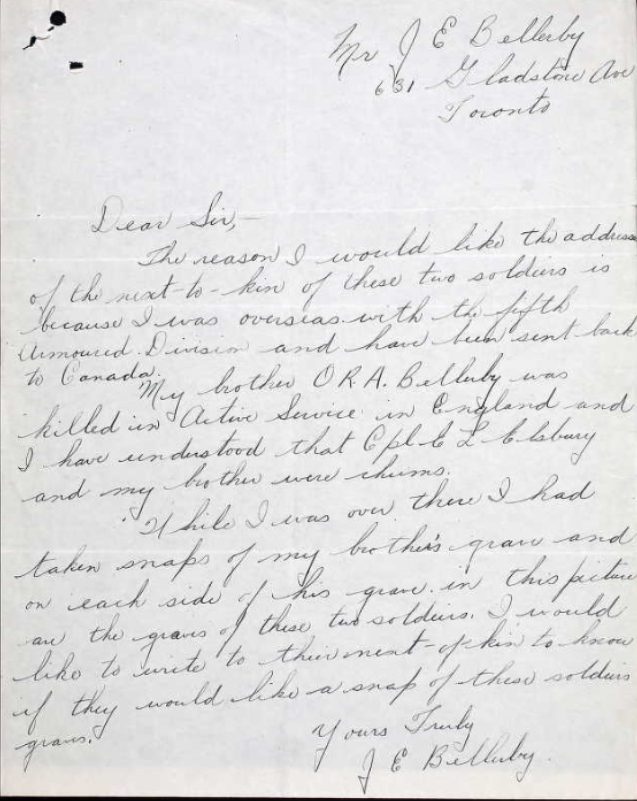 Mr J E Bellerby
631 Gladstone Ave
Toronto
Dear Sir,-
The reason I would like the address
of the next-to-kin of these two soldiers is
because I was overseas with the fifth
Armoured Division and have been sent back
to Canada.
My brother O.R.A. Bellerby was
killed in Active Service in England and
I have understood that Cpl. E L Elsbury
and my brother were chums.
While I was over there I had
taken snaps of my brother's grave and
on each side of his grave in this picture
are the graves of these two soldiers. I would
like to write to their next-of-kin to know
if they would like a snap of these soldiers
graves.
Yours Truly
J E Bellerby.